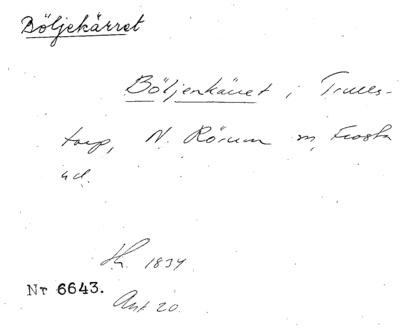 Böljekärret
Böljenkäret i Trulls-
torp, N. Rörum sn, Frosta
hd.
Sk. 1834
Nr 6643.
Akt 20.